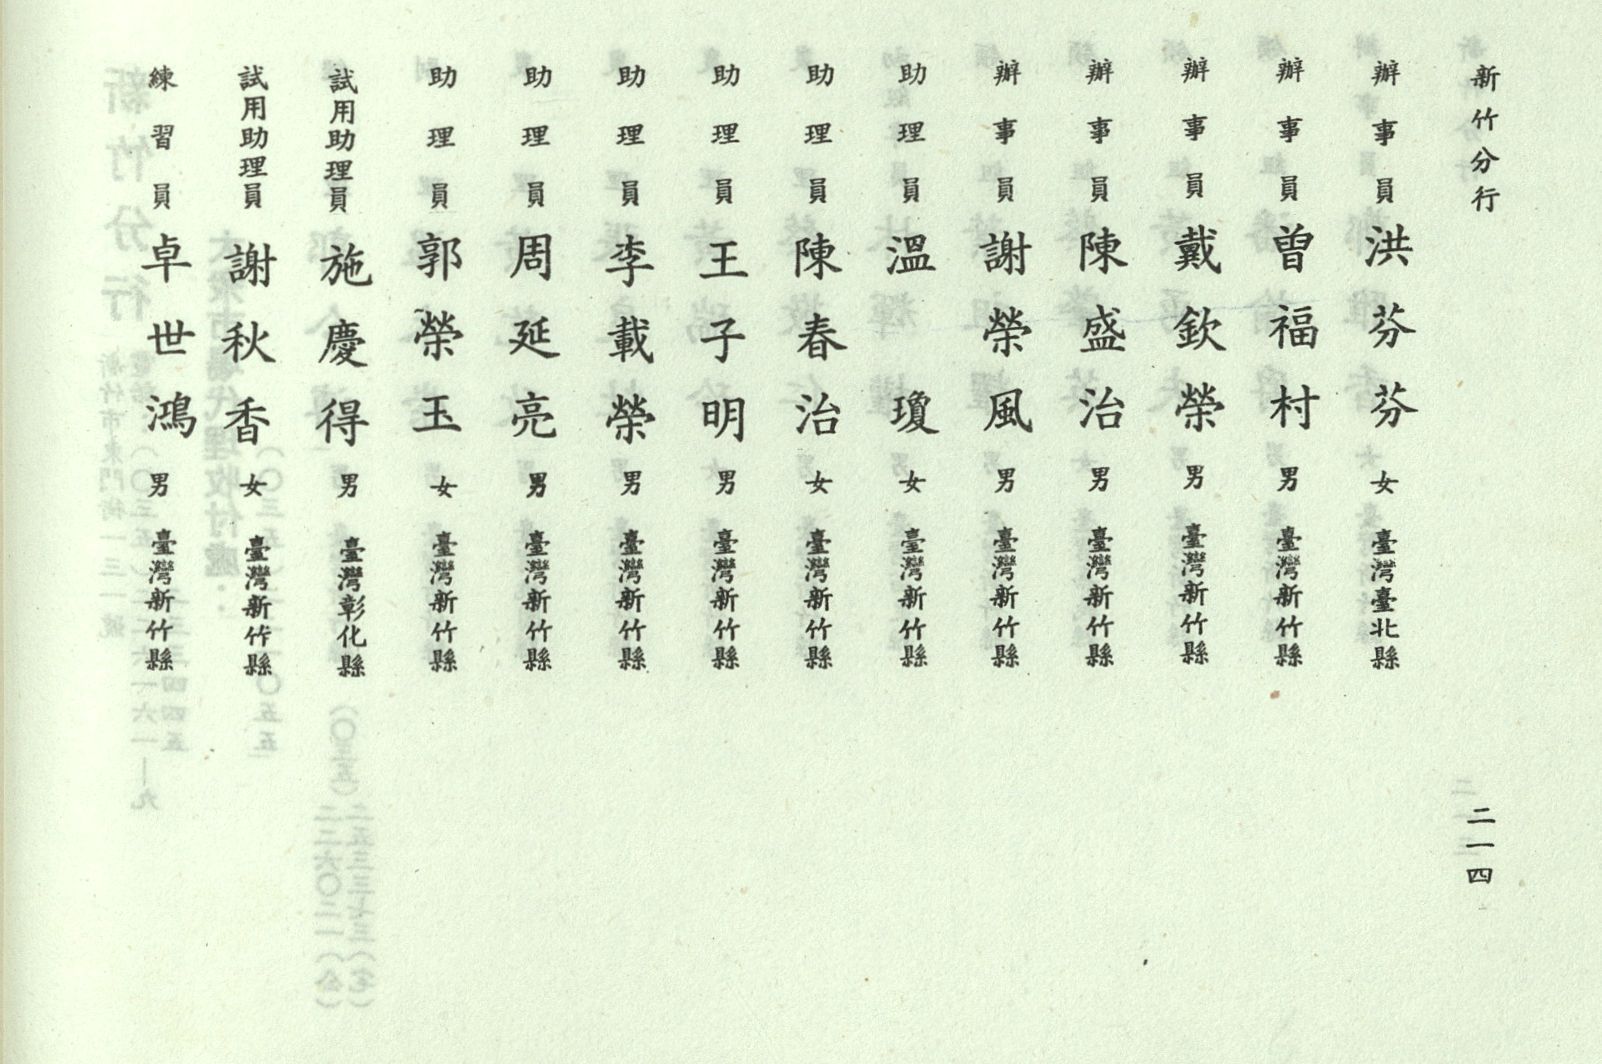 新竹分行
二一四
辦事員 洪芬芬 女 臺灣臺北縣
辦事員 曾福村 男 臺灣新竹縣
辦事員 戴欽榮 男 臺灣新竹縣
辦事員 陳盛治 男 臺灣新竹縣
辦事員 謝榮風 男 臺灣新竹縣
助理員 溫瓊 女 臺灣新竹縣
助理員 陳春治 女 臺灣新竹縣
助理員 王子明 男 臺灣新竹縣
助理員 李載榮 男 臺灣新竹縣
助理員 周延亮 男 臺灣新竹縣
助理員 郭榮玉 女 臺灣新竹縣
試用助理員 施慶得 男 臺灣彰化縣
試用助理員 謝秋香 女 臺灣新竹縣
練習員 卓世鴻 男 臺灣新竹縣